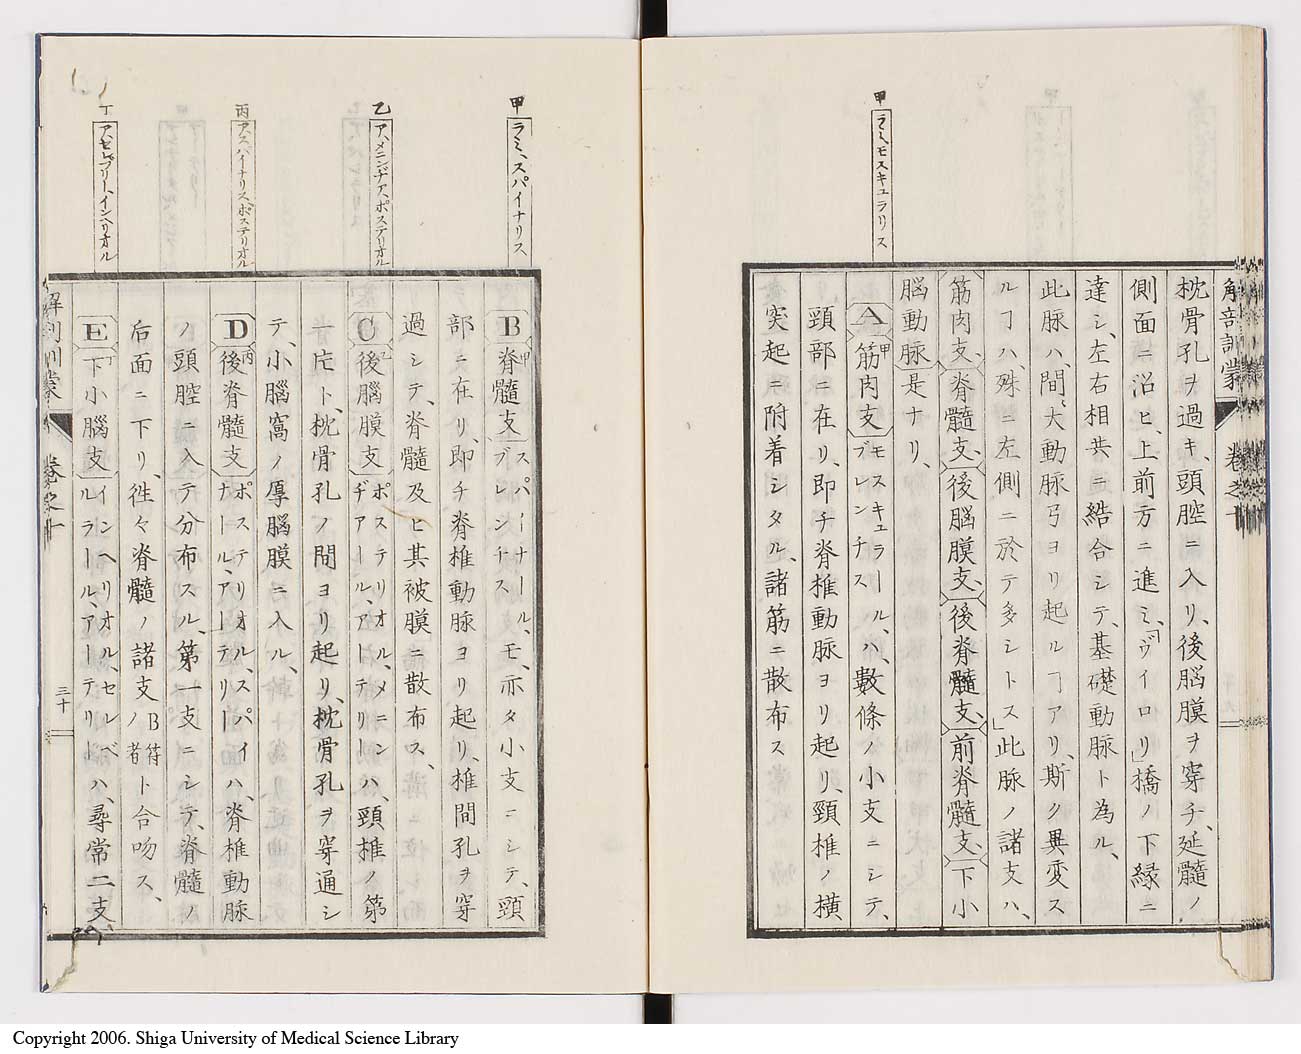 甲
ラミ、モスキュラリス
解剖訓蒙
巻之十
枕骨孔ヲ過キ、頭腔ニ入リ、後脳膜ヲ穿チ、延髓ノ
側面ニ沿ヒ、上前方ニ進ミ、「ヴイロリ」橋ノ下縁ニ
達シ、左右相共ニ結合シテ、基礎動脈ト為ル、
此脈ハ、間〻大動脈弓ヨリ起ルヿアリ、斯ク異変ス
ルヿハ、殊ニ左側ニ於テ多シトス」此脈ノ諸支ハ、
筋肉支、脊髓支、後脳膜支、後脊髓支、前脊髓支、下小
脳動脈是ナリ、
A 筋肉支 モスキュラール、ブレンチス ハ、數條ノ小支ニシテ、
頸部ニ在リ、即チ脊椎動脈ヨリ起リ、頸椎ノ横
突起ニ附着シタル、諸筋ニ散布ス
甲
ラミ、スパイナリス
乙
ア、メニンヂア、ポステリオル
丙
ア、スパイナリス、ポステリオル
丁
ア、セレブリー、インヘリオル
B 脊髓支 スパイーナール、ブレンチス モ、亦タ小支ニシテ、頸
部ニ在リ、即チ脊椎動脈ヨリ起リ、椎間孔ヲ穿
過シテ、脊髓及ヒ其被膜ニ散布ス、
C 後腦膜支 ポステリオル、メニンヂアール、アーテリー ハ、頸椎ノ第
一庀ト、枕骨孔ノ間ヨリ起リ、枕骨孔ヲ穿通シ
テ、小腦窩ノ厚腦膜ニ入ル、
D 後脊髓支 ポステリオル、スパイナール、アーテリー ハ、脊椎動脈
ノ頭腔ニ入テ分布スル、第一支ニシテ、脊髓ノ
后面ニ下リ、徃々脊髓ノ諸支ノ B符者 ト合吻ス、
E 下小腦支 インヘリオル、セレベルラール、アーテリー ハ、尋常二支、
解剖訓蒙
巻之十
三十
Copyright 2006. Shiga University of Medical Science Library